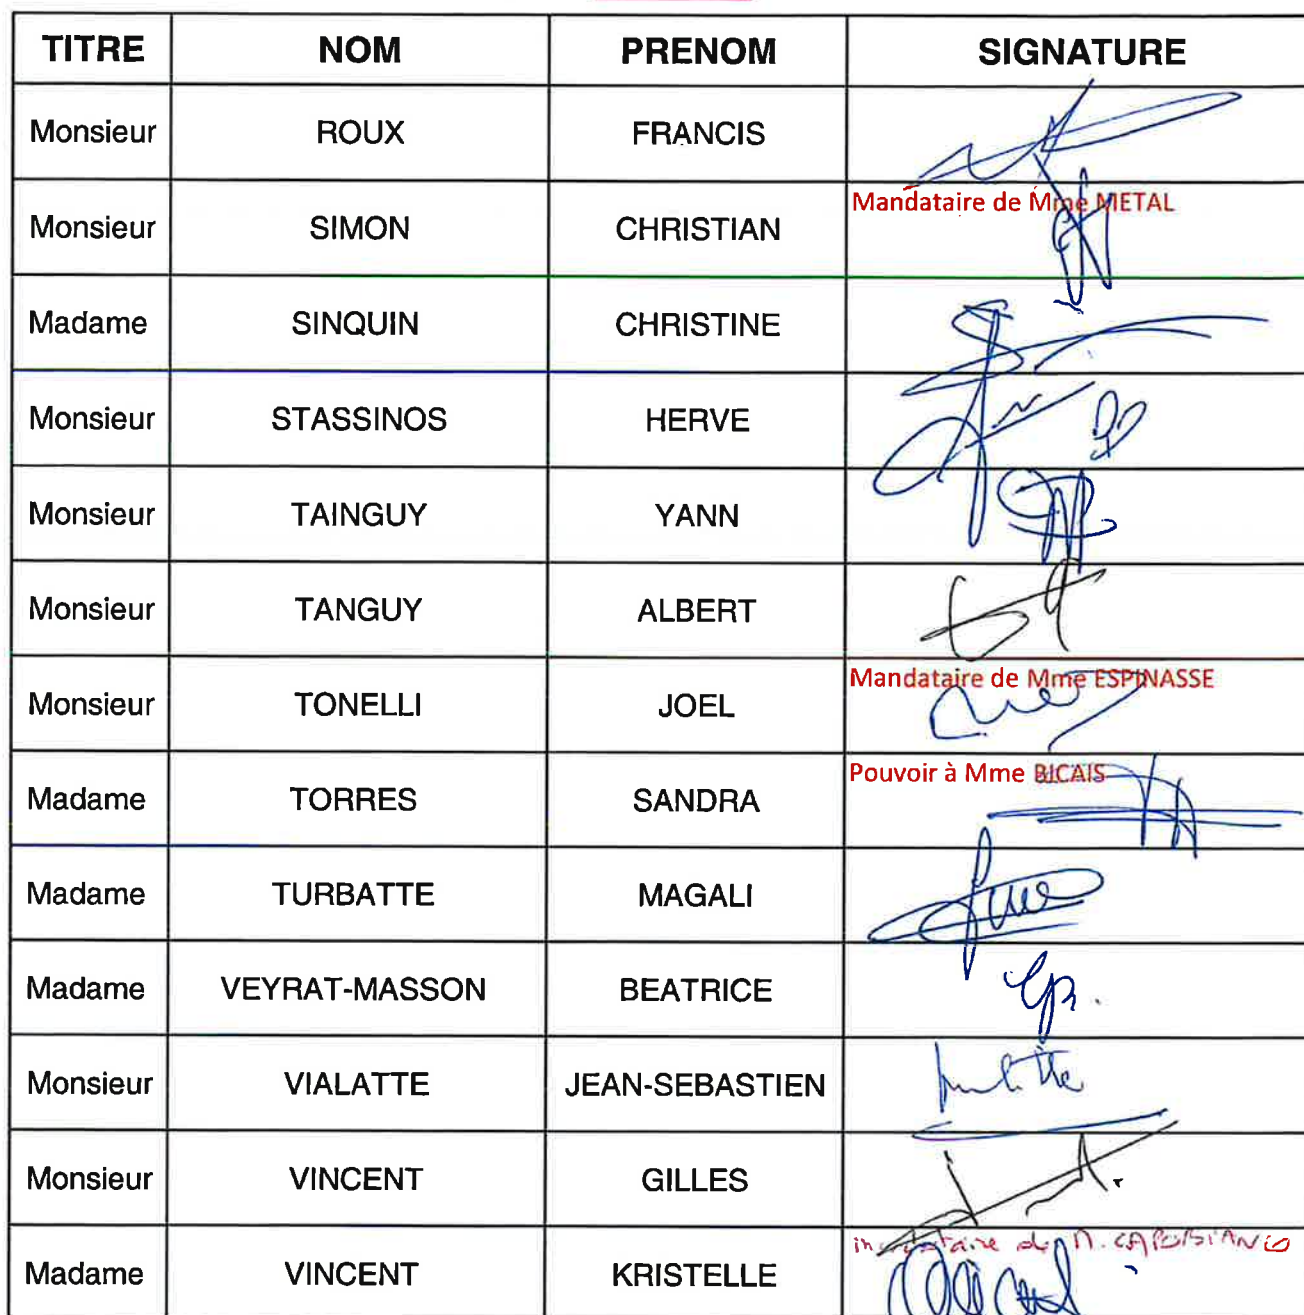 TITRE NOM PRENOM SIGNATURE
Monsieur ROUX FRANCIS
Monsieur SIMON CHRISTIAN Mandataire de Mme METAL
Madame SINQUIN CHRISTINE
Monsieur STASSINOS HERVE
Monsieur TAINGUY YANN
Monsieur TANGUY ALBERT
Monsieur TONELLI JOEL Mandataire de Mme ESPINASSE
Madame TORRES SANDRA Pouvoir à Mme BICAIS
Madame TURBATTE MAGALI
Madame VEYRAT-MASSON BEATRICE
Monsieur VIALATTE JEAN-SEBASTIEN
Monsieur VINCENT GILLES
Madame VINCENT KRISTELLE de M. CAPOBIANCO